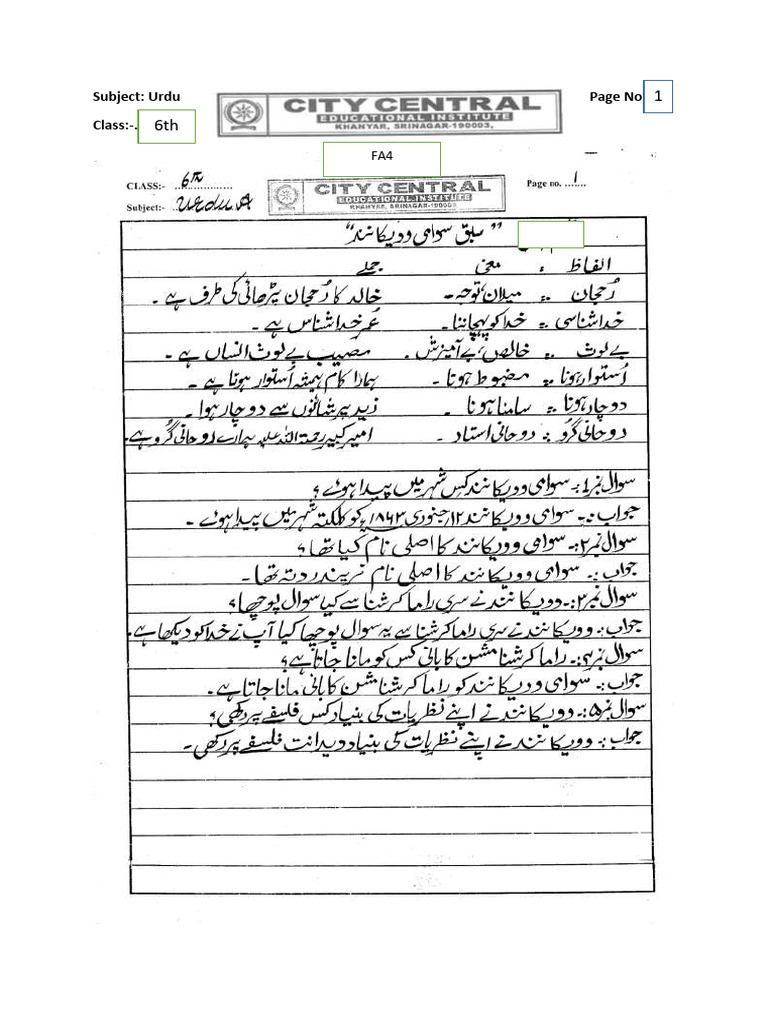 Subject: Urdu
CITY CENTRAL
EDUCATIONAL INSTITUTE
KHANYAR, SRINAGAR-190003,
Page No 1
Class:-. 6th
FA4
CLASS:- 6th
CITY CENTRAL
EDUCATIONAL INSTITUTE
KHANYAR, SRINAGAR-190003
Page no. 1
Subject:- URDU
"سبق سوامی وویکانند"
الفاظ : معنی جملے
رُحجان :- میلان، توجہ - خالد کا رُحجان پڑھائی کی طرف ہے۔
خداشناسی :- خدا کو پہچاننا۔ عُمر خداشناس ہے۔
بے لوث :- خالص، بے آمیزش۔ مصیب بے لوث انساں ہے۔
اُستوار ہونا :- مضبوط ہونا۔ ہمارا کام ہمیشہ اُستوار ہونا ہے۔
دوچار ہونا :- سامنا ہونا۔ زید پریشانوں سے دوچار ہوا۔
روحانی گرُو :- روحانی استاد۔ امیر کبیر رحمتہ اللہ علیہ ہمارے روحانی گرو ہے۔
سوال نمبر ۱:- سوامی وویکانند کس شہر میں پیدا ہوئے؟
جواب :- سوامی وویکانند ۱۲ جنوری ۱۸۶۳ کو کلکتہ شہر میں پیدا ہوئے۔
سوال نمبر ۲:- سوامی وویکانند کا اصلی نام کیا تھا؟
جواب :- سوامی وویکانند کا اصلی نام نریندر دتہ تھا۔
سوال نمبر ۳:- وویکانند نے سری راما کرشنا سے کیا سوال پوچھا؟
جواب :- وویکانند نے سری راما کرشنا سے یہ سوال پوچھا کیا آپ نے خدا کو دیکھا ہے۔
سوال نمبر ۴:- راما کرشنا مشن کا بانی کس کو مانا جاتا ہے؟
جواب :- سوامی وویکانند کو راما کرشنا مشن کا بانی مانا جاتا ہے۔
سوال نمبر ۵:- وویکانند نے اپنے نظریات کی بنیاد کس فلسفے پر رکھی؟
جواب :- وویکانند نے اپنے نظریات کی بنیاد ویدانت فلسفے پر رکھی۔